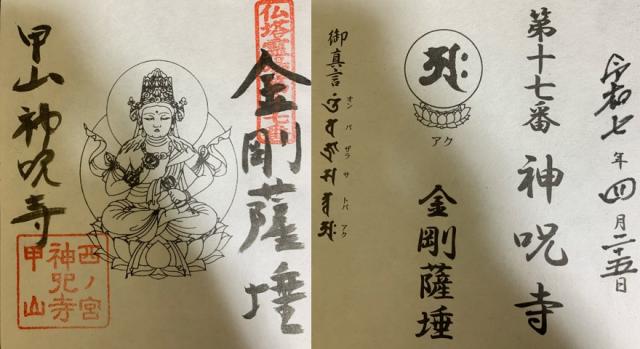 金剛薩埵
甲山 神呪寺
西ノ宮
神呪寺
甲山
令和七年四月二十五日
第十七番 神呪寺
アク
金剛薩埵
御真言
オン バ ザラ サ トバ アク